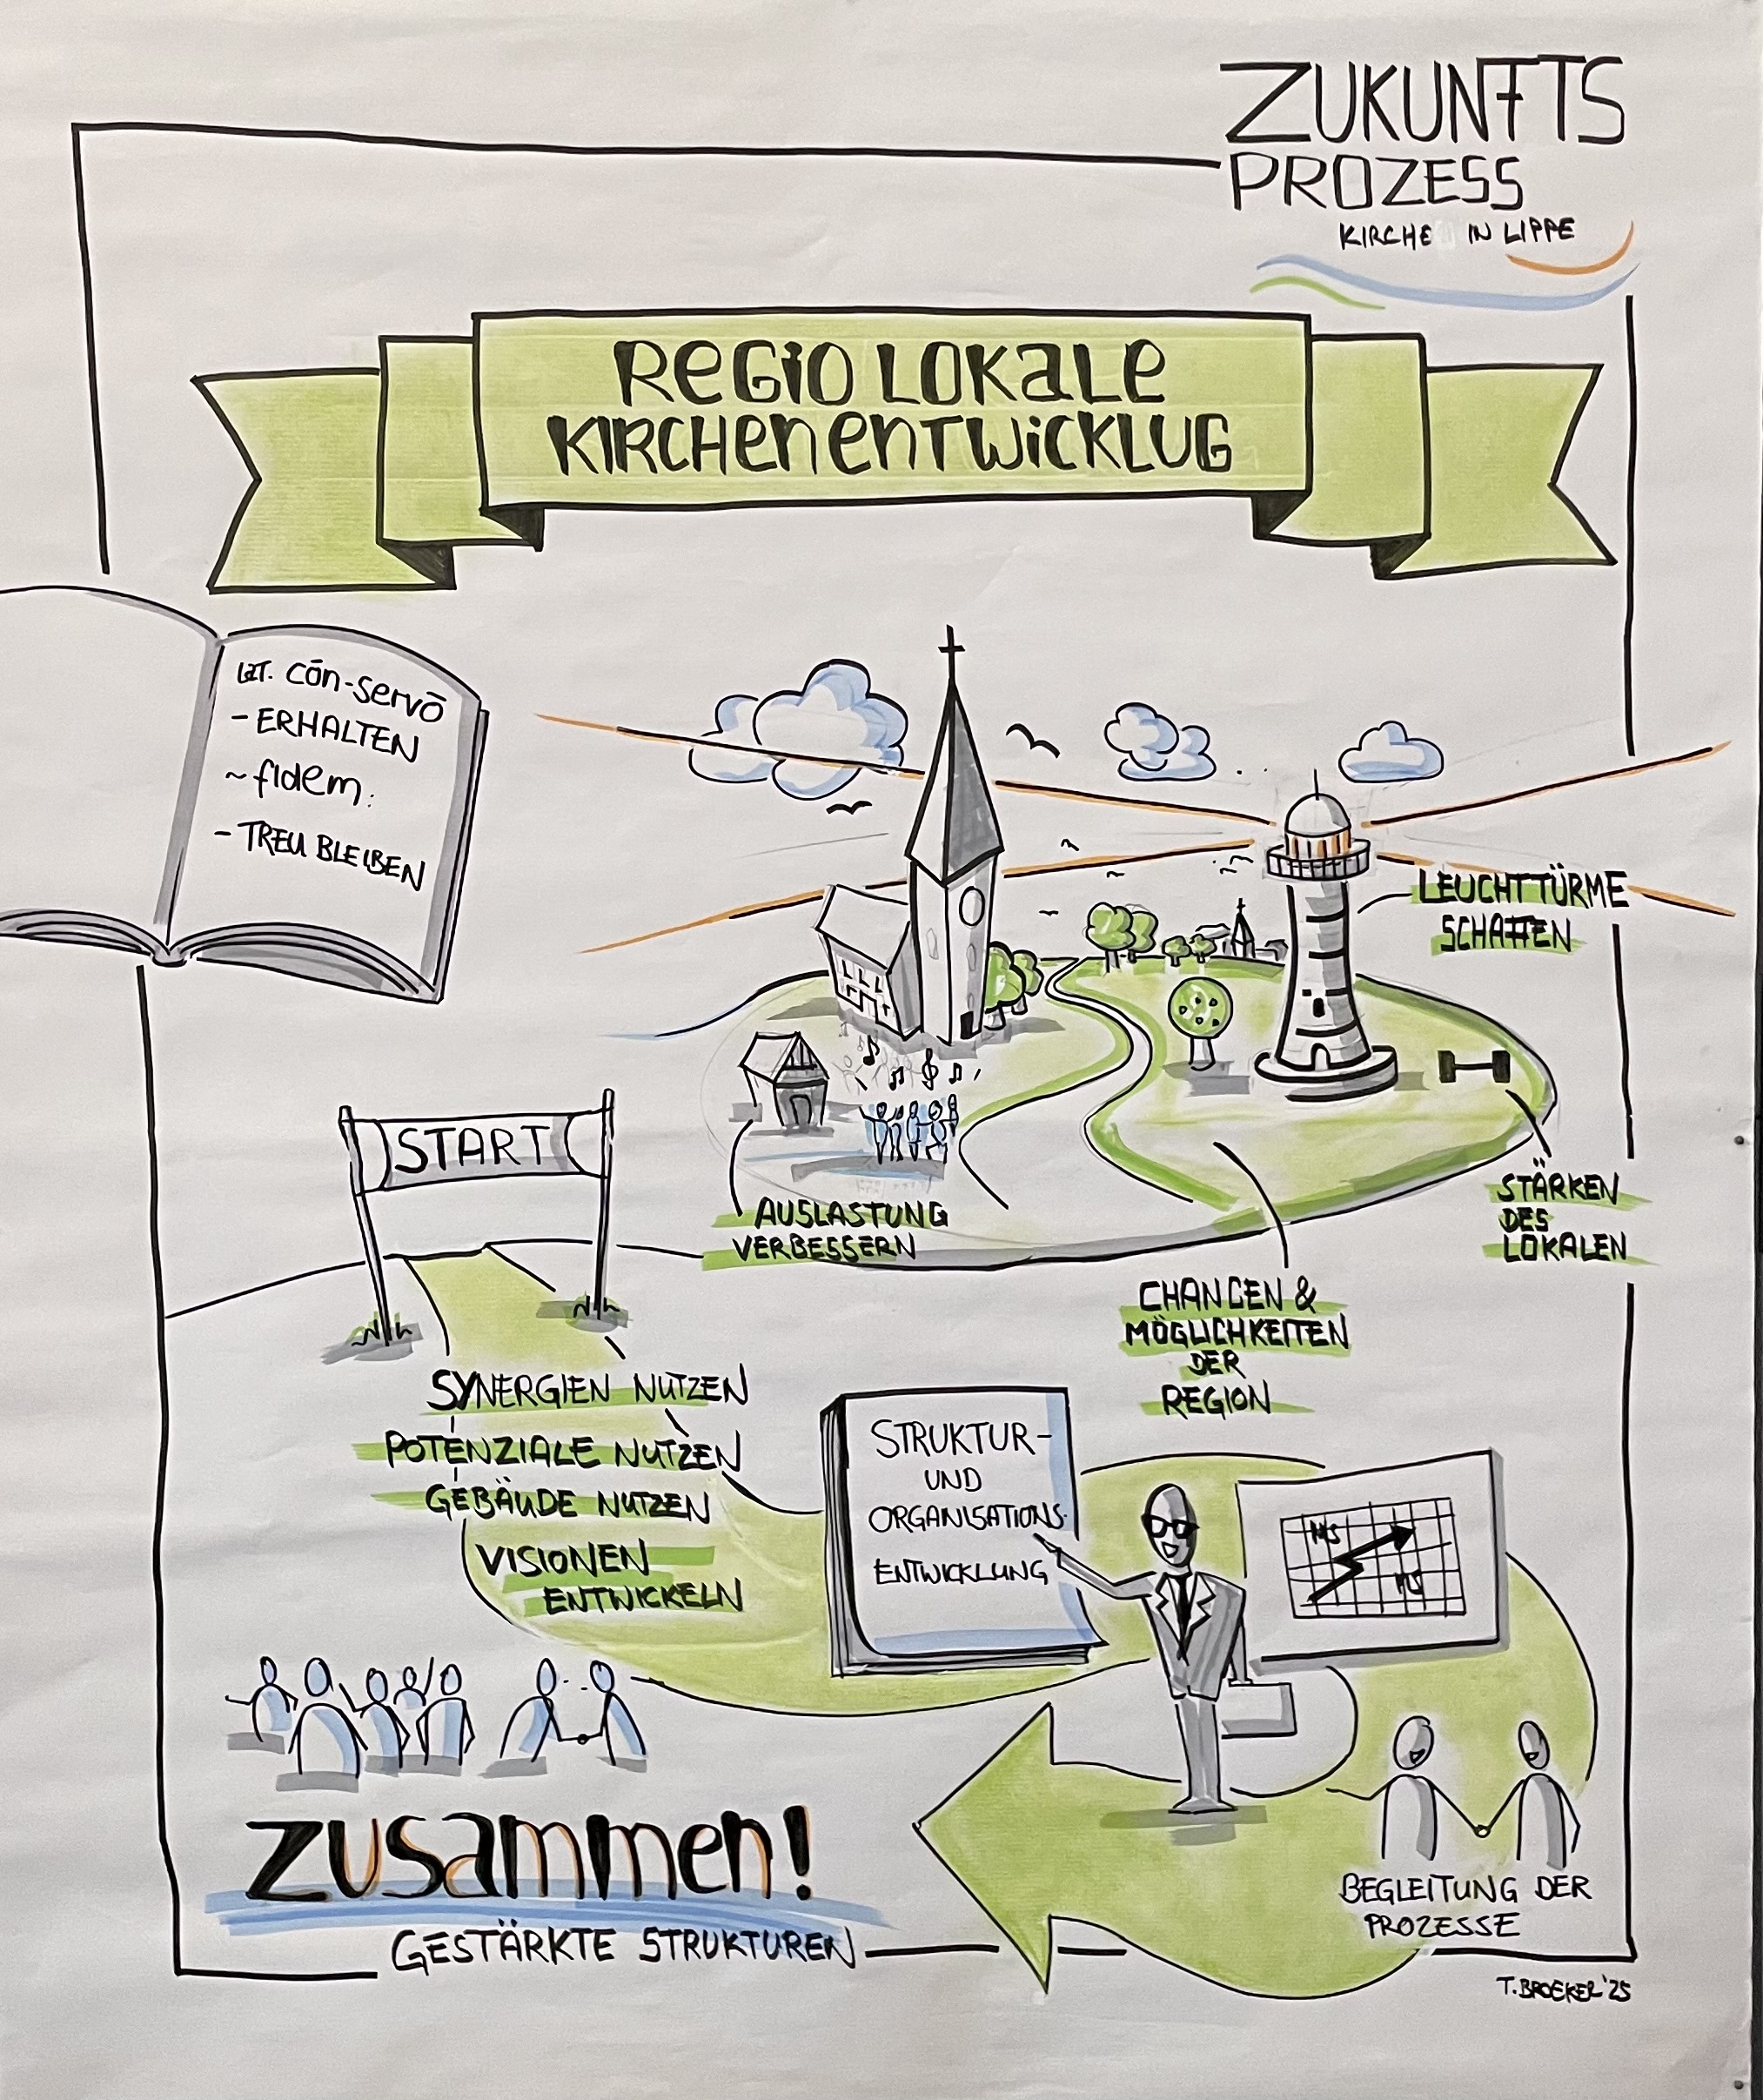 ZUKUNFTS
PROZESS
KIRCHE IN LIPPE
REGIO LOKALE
KIRCHENENTWICKLUG
LAT. cōn-servō
- ERHALTEN
~ fidem:
- TREU BLEIBEN
LEUCHTTÜRME
SCHAFFEN
START
AUSLASTUNG
VERBESSERN
STÄRKEN
DES
LOKALEN
CHANCEN &
MÖGLICHKEITEN
DER
REGION
SYNERGIEN NUTZEN
POTENZIALE NUTZEN
GEBÄUDE NUTZEN
VISIONEN
ENTWICKELN
STRUKTUR-
UND
ORGANISATIONS-
ENTWICKLUNG
ZUSAMMEN!
GESTÄRKTE STRUKTUREN
BEGLEITUNG DER
PROZESSE
T. BROEKER '25